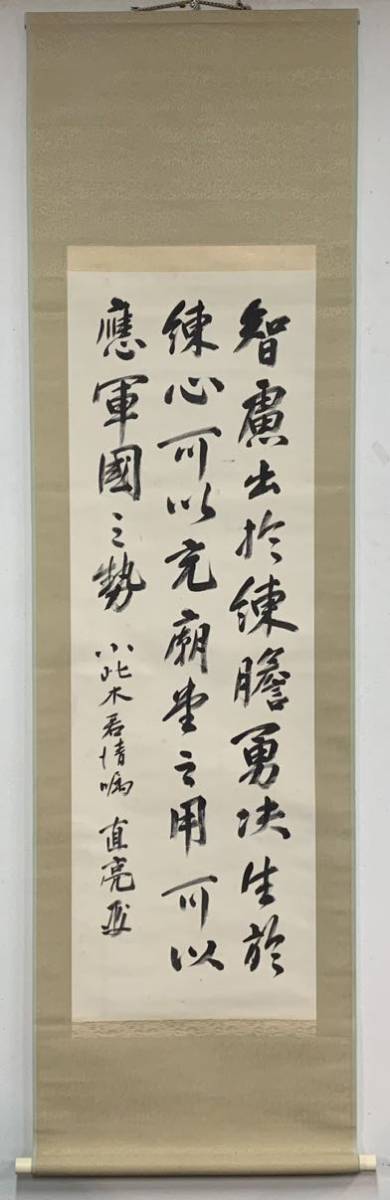 智慮出於練膽勇决生於
練心可以充廟堂之用可以
應軍國之勢 小此木君情嘱 直亮書